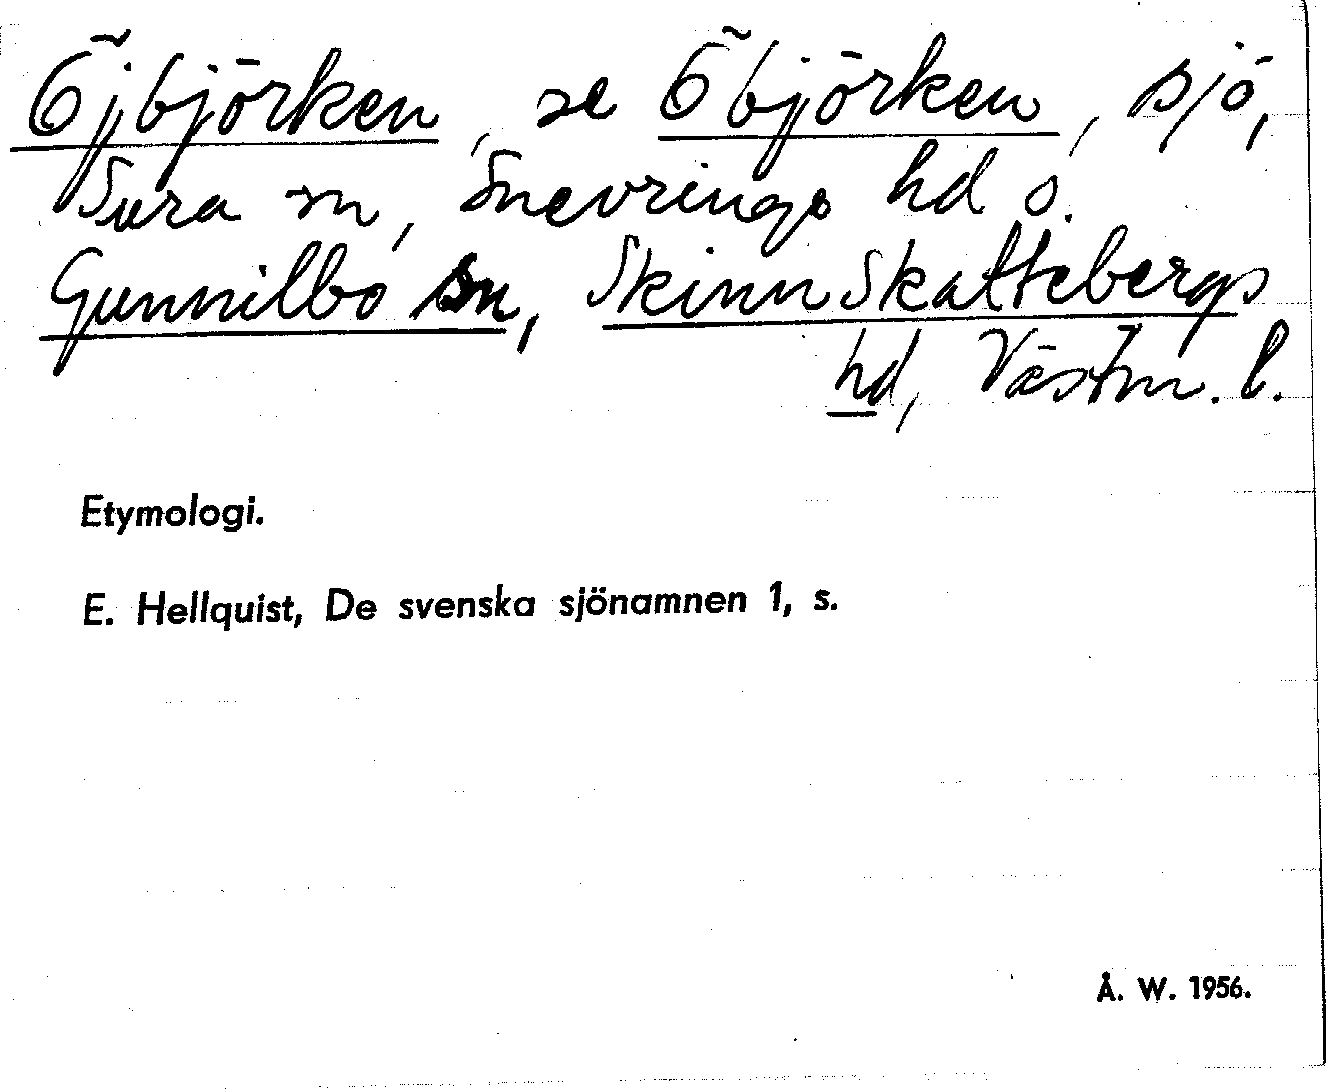 Öjbjörken, se Öbjörken, sjö,
Sura sn, Snevringe hd o.
Gunnilbo sn, Skinnskattebergs
hd, Västm. l.
Etymologi.
E. Hellquist, De svenska sjönamnen 1, s.
Å. W. 1956.